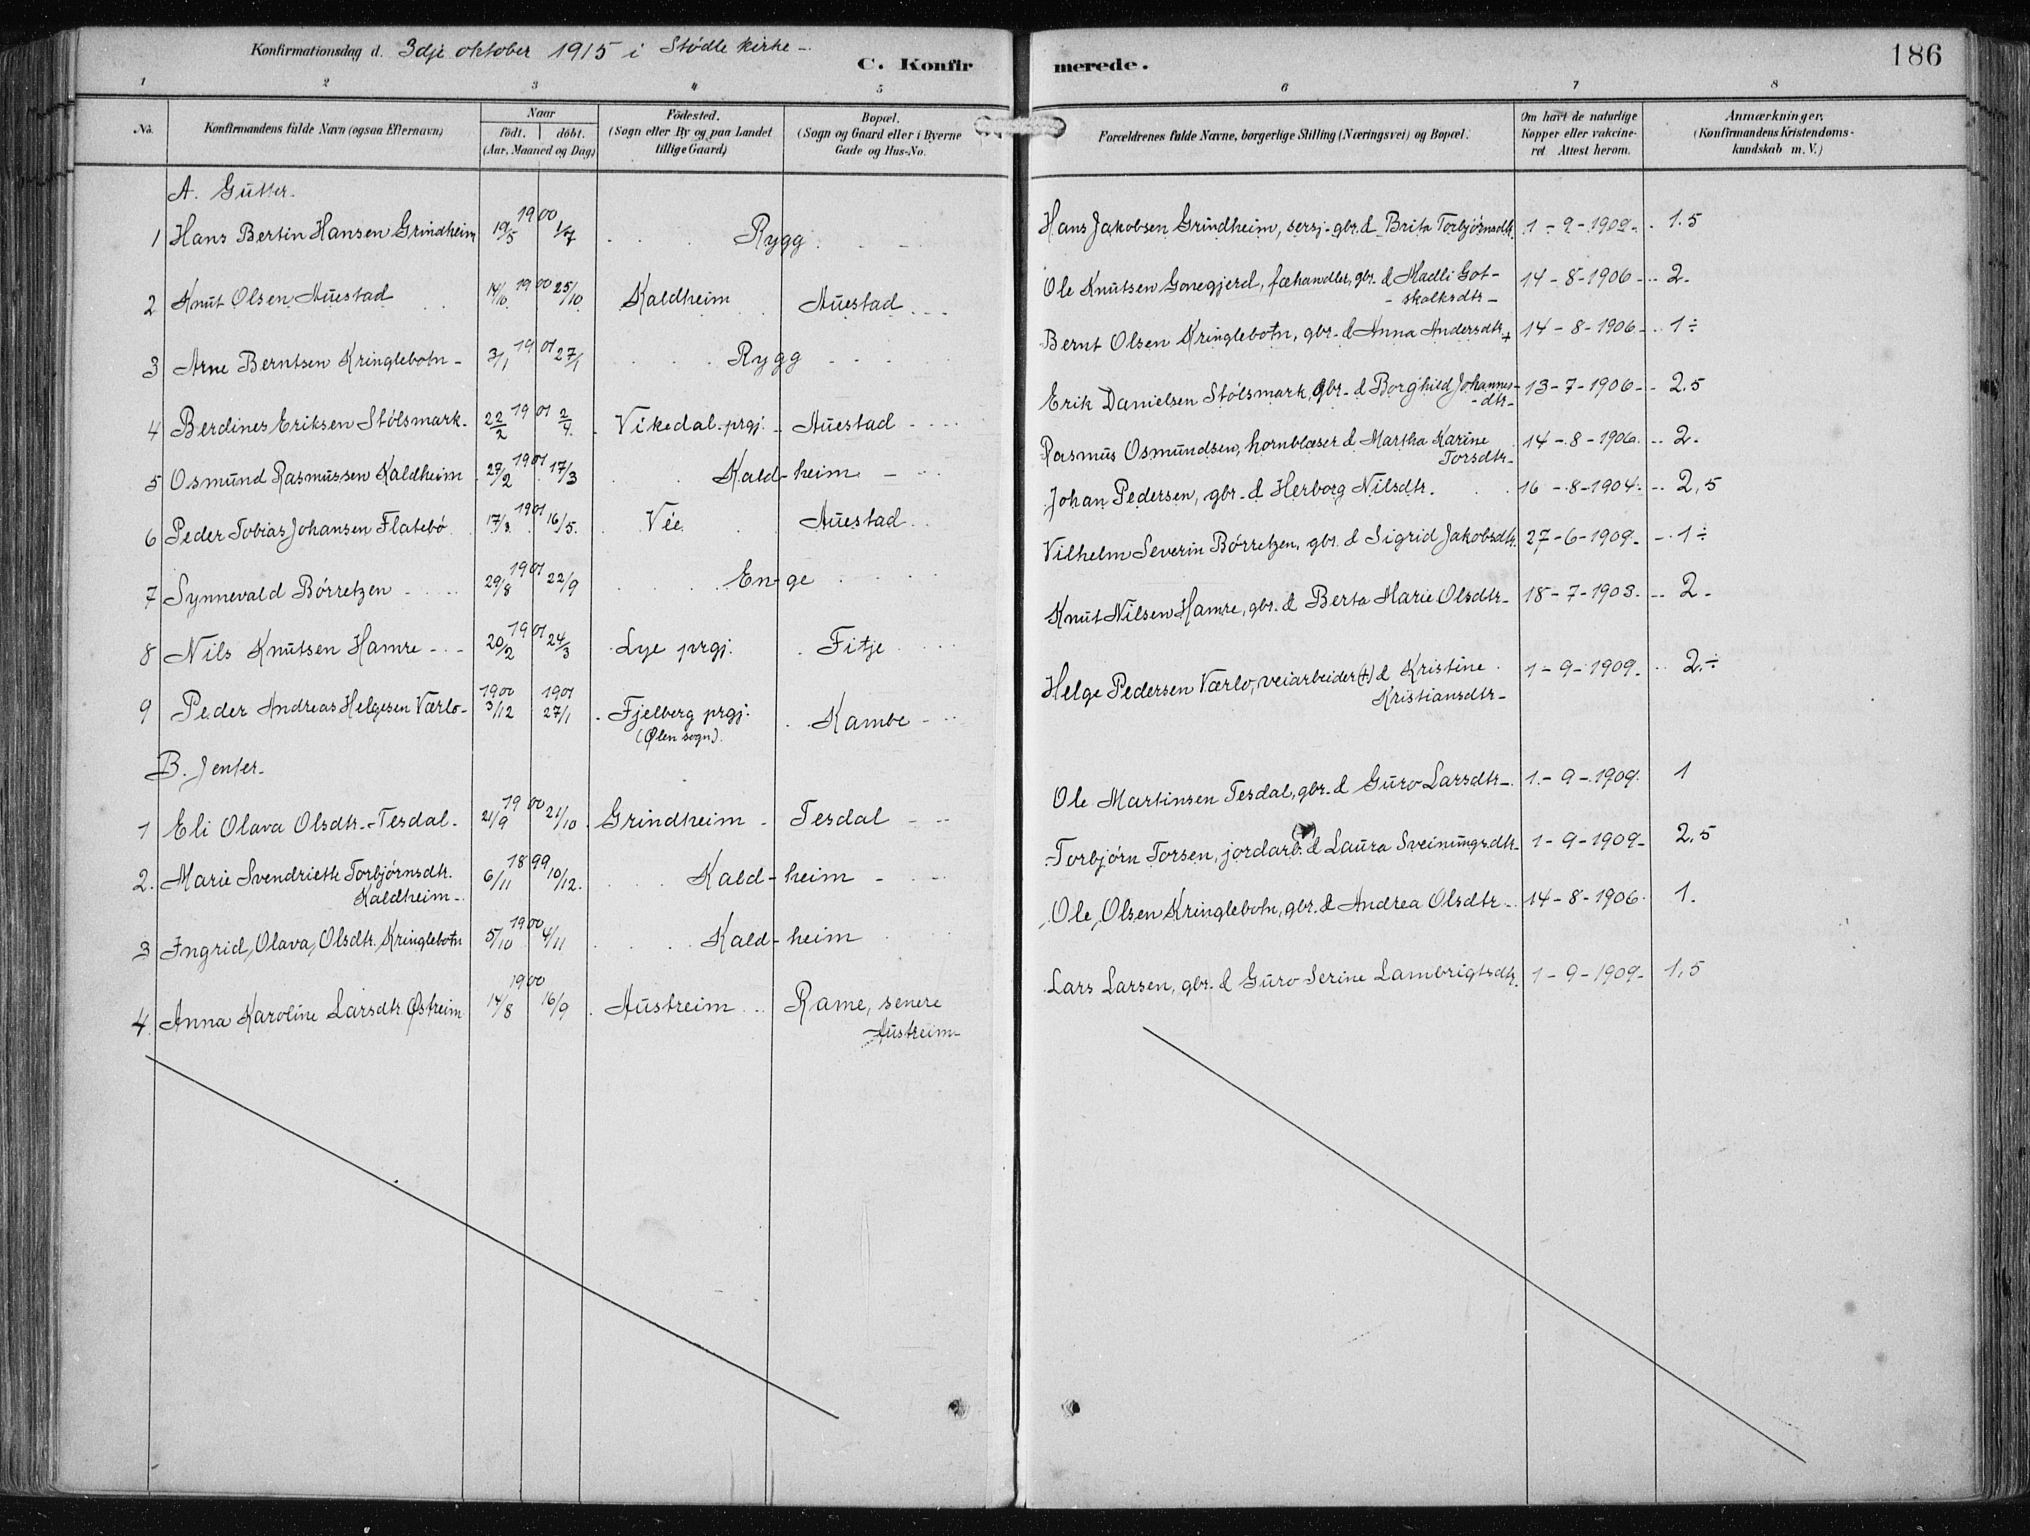 Konfirmationsdag d. 3dje oktober 1915 i Stødle kirke -.
C. Konfir merede. 186
1 2 3 4 5 6 7 8
No. Konfirmandens fulde Navn (ogsaa Efternavn)
Naar født. døbt. (Aar, Maaned og Dag)
Fødested. (Sogn eller By og paa Landet tillige Gaard)
Bopæl. (Sogn og Gaard eller i Byerne Gade og Hus-No.
Forældrenes fulde Navne, borgerlige Stilling (Næringsvei) og Bopæl.
Om havt de naturlige Kopper eller vakcineret Attest herom.
Anmærkninger. (Konfirmandens Kristendomskundskab m. V.)
A. Gutter.
1 Hans Bertin Hansen Grindheim 1900 19/5 1/7 Rygg Hans Jakobsen Grindheim, sersj. gbr. & Brita Torbjørnsdtr. 1-9-1909 1.5
2 Knut Olsen Auestad 1900 14/10 25/10 Kaldheim Auestad Ole Knutsen Gonegjerd, fæhandler, gbr. & Madli Gotskalksdtr- 14-8-1906 2.
3 Arne Berntsen Kringlebotn - 1901 3/1 27/1 Rygg Bernt Olsen Kringlebotn, gbr. & Anna Andersdtr. + 14-8-1906 1÷
4 Berdines Eriksen Stølsmark. 1901 22/2 2/4 Vikedal prgj. Auestad Erik Danielsen Stølsmark, gbr. & Borghild Johannesdtr- 13-7-1906 2.5
5 Osmund Rasmussen Kaldheim 1901 27/2 17/3 Kald-heim Rasmus Osmundsen, hornblæser & Martha Karine Torsdtr- 14-8-1906 2.
6 Peder Tobias Johansen Flatebø 1901 17/3 16/5 Vie Auestad Johan Pedersen, gbr. & Herborg Nilsdtr. 16-8-1904 2,5
7 Synnevald Børretzen 1901 29/8 22/9 En-ge Vilhelm Severin Børretzen, gbr. & Sigrid Jakobsdtr. 27-6-1909 1÷
8 Nils Knutsen Hamre 1901 20/2 24/3 Lye prgj. Fitje Knut Nilsen Hamre, gbr. & Berta Marie Olsdtr- 18-7-1903 2-
9 Peder Andreas Helgesen Værlo- 1900 3/12 1901 27/1 Fjelberg prgj. (Ølen sogn). Kambe Helge Pedersen Værlo, veiarbeider (+) & Kristine Kristiansdtr- 1-9-1909 2÷
B. Jenter.
1 Eli Olava Olsdtr. Tesdal. 1900 21/9 21/10 Grindheim Tesdal Ole Martinsen Tesdal, gbr. & Guro Larsdtr- 1-9-1909 1
2. Marie Svendrieth Torbjørnsdtr. Kaldheim 1899 6/11 10/12. Kald-heim Torbjørn Torsen, jordarb. & Laura Sveinungsdtr 1-9-1909 2.5
3 Ingrid, Olava, Olsdtr. Kringlebotn 1900 5/10 4/11 Kald-heim Ole, Olsen Kringlebotn, gbr. & Andrea Olsdtr 14-8-1906 1.
4. Anna Karoline Larsdtr. Østreim 1900 14/8 16/9 Austreim Rame, senere Austreim Lars Larsen, gbr. & Guro Serine Lambrigtsdtr. 1-9-1909 1,5